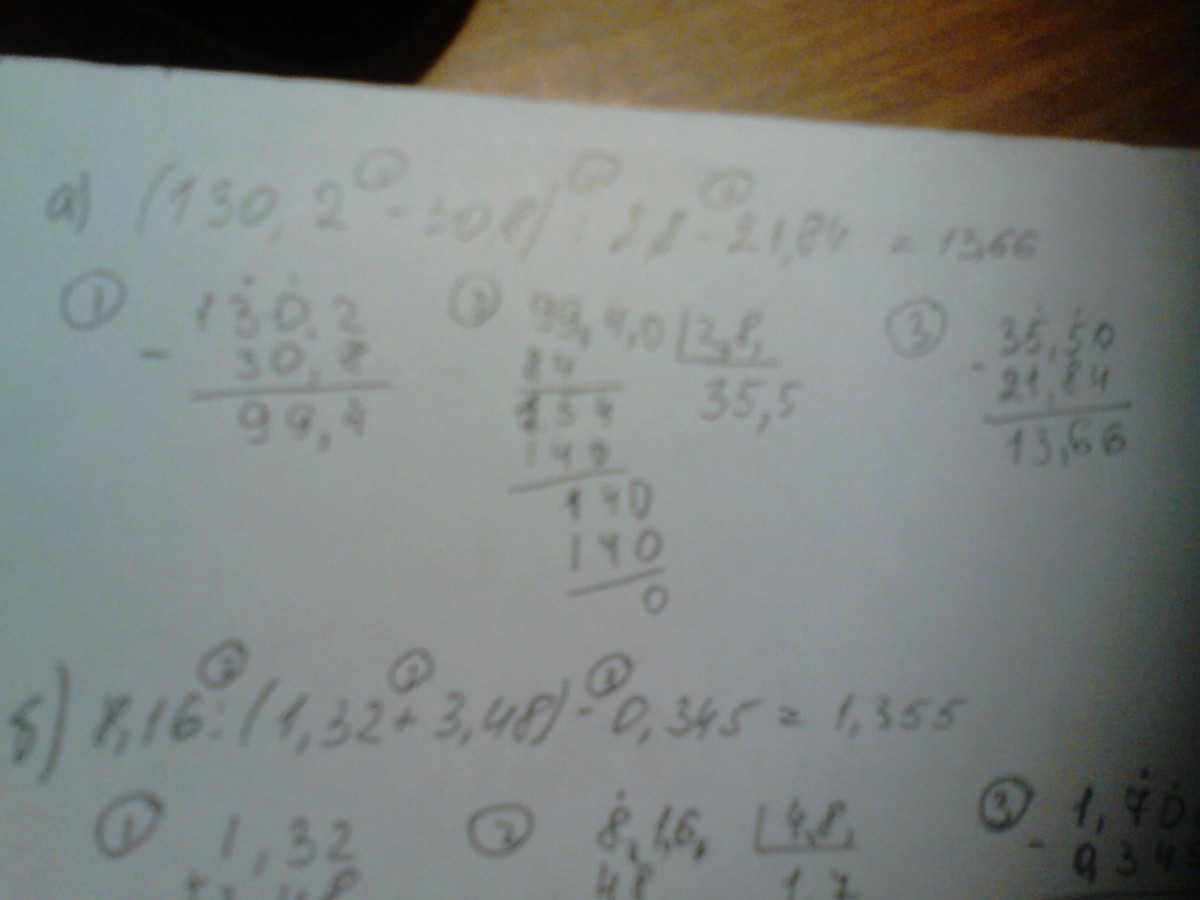 а) (130,2 - 30,8) : 2,8 - 21,84 = 13,66
① 130,2 - 30,8 99,4
② 99,4,0 2,8, 35,5 84 154 140 140 140 0
③ 35,50 - 21,84 13,66
б) 8,16 : (1,32 + 3,48) - 0,345 = 1,355
① 1,32
② 8,16, 4,8, 48 1,7
③ 1,70 - 0,345